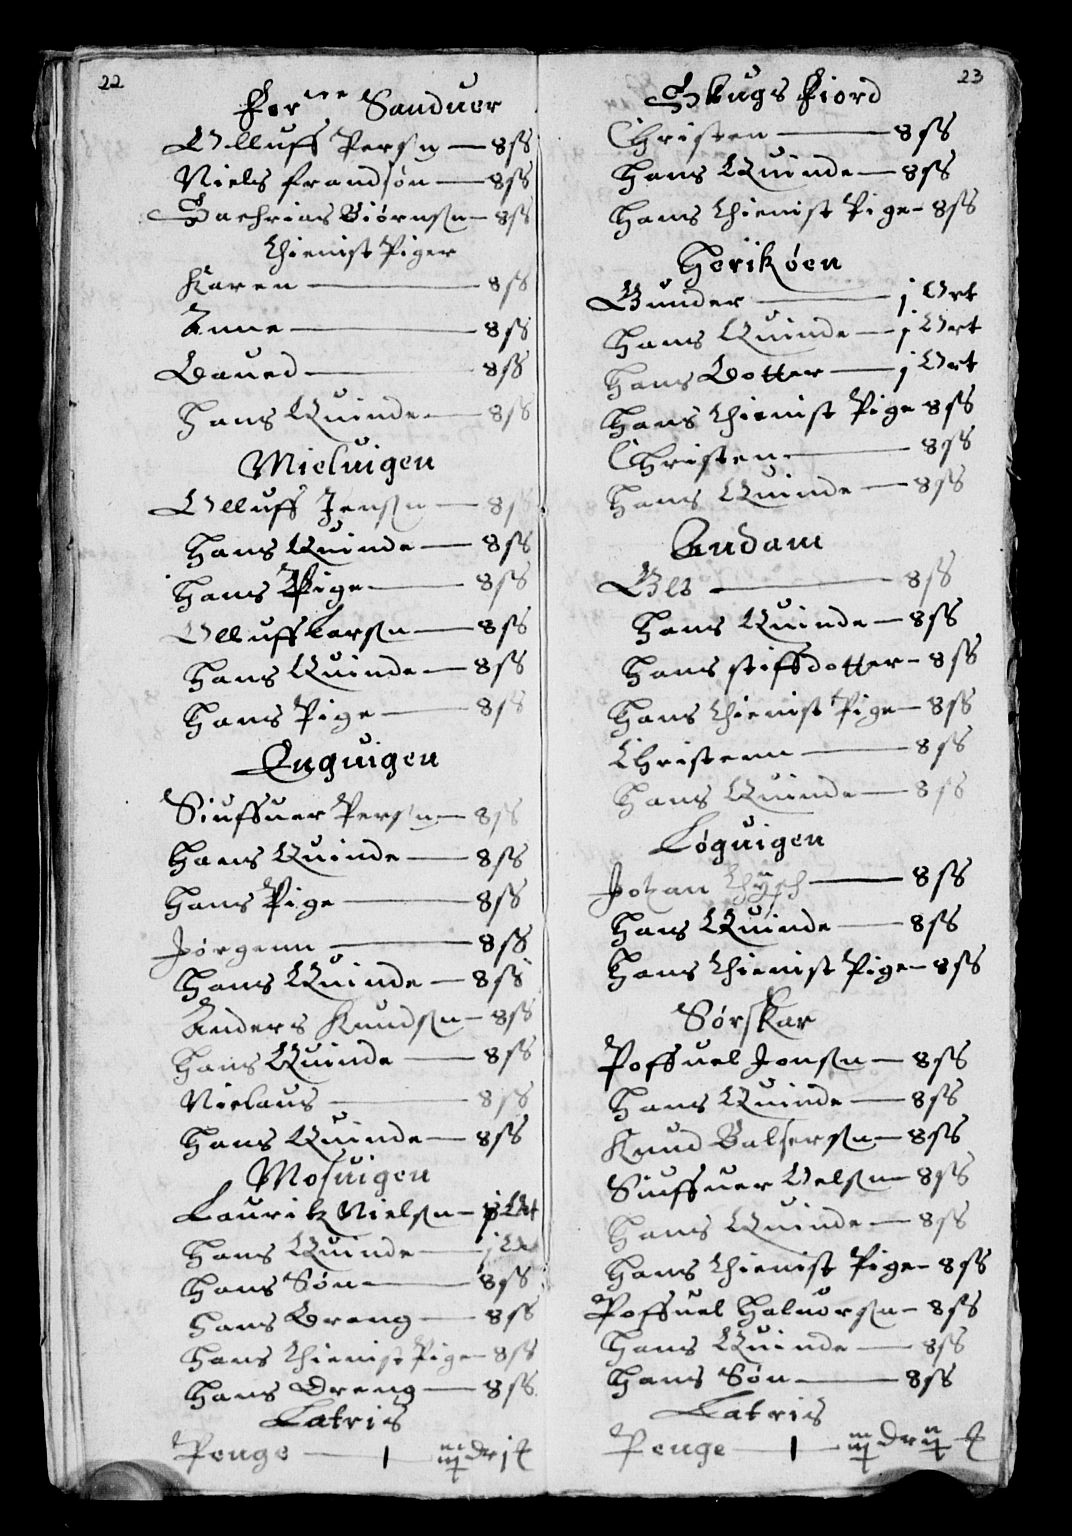 22
For ne Sanduer
Olluff Persøn — 8 ss
Niels frandsøn — 8 ss
Sachrias Biørnsøn — 8 ss
thienist Piger
Karen — 8 ss
Anne — 8 ss
Daued — 8 ss
Hans Quinde — 8 ss
Mieluigen
Olluff Jensøn — 8 ss
Hans Quinde — 8 ss
Hans Pige — 8 ss
Olluff Larsøn — 8 ss
Hans Quinde — 8 ss
Hans Pige — 8 ss
Enguigen
Siuffuer Persøn — 8 ss
Hans Quinde — 8 ss
Hans Pige — 8 ss
Jørgenn — 8 ss
Hans Quinde — 8 ss
Anders Knudsøn — 8 ss
Hans Quinde — 8 ss
Nielaus — 8 ss
Hans Quinde — 8 ss
Mosuigen
Lauritz Nielsøn — j Ort
Hans Quinde — j Ort
Hans Søn — 8 ss
Hans Dreng — 8 ss
Hans thienist Pige — 8 ss
Hans Dreng — 8 ss
Latris
Penge — 1
23
Skugs Fiord
Christen — 8 ss
Hans Quinde — 8 ss
Hans thienist Pige — 8 ss
Herikøen
Gunder — j Ort
Hans Quinde — j Ort
Hans Dotter — j Ort
Hans thienist Pige 8 ss
Christen — 8 ss
Hans Quinde — 8 ss
Andam
Ole — 8 ss
Hans Quinde — 8 ss
Hans stiffdotter — 8 ss
Hans thienist Pige — 8 ss
Christenn — 8 ss
Hans Quinde — 8 ss
Løguigen
Johan — 8 ss
Hans Quinde — 8 ss
Hans thienist Pige — 8 ss
Sørskar
Poffuel Jonsøn — 8 ss
Hans Quinde — 8 ss
Knud Balsersøn — 8 ss
Siuffuer Oelsøn — 8 ss
Hans Quinde — 8 ss
Hans thienist Pige — 8 ss
Poffuel Haluorsøn — 8 ss
Hans Quinde — 8 ss
Hans Søn — 8 ss
Latris
Penge — 1